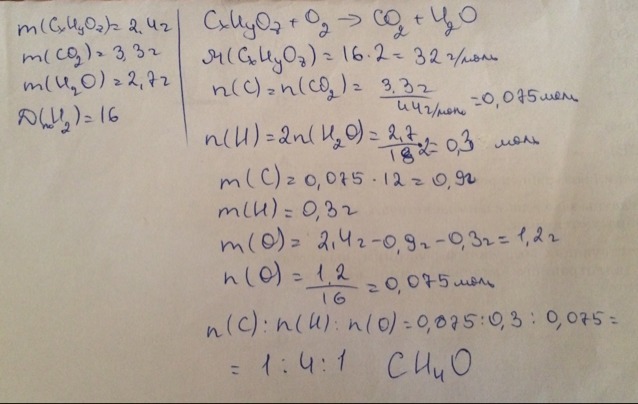 m(CxHyOz) = 2,4г
m(CO2) = 3,3г
m(H2O) = 2,7г
D(по H2) = 16
CxHyOz + O2 → CO2 + H2O
M(CxHyOz) = 16·2 = 32 г/моль
n(C) = n(CO2) = 3,3г / 44 г/моль = 0,075 моль
n(H) = 2n(H2O) = 2,7 / 18 · 2 = 0,3 моль
m(C) = 0,075 · 12 = 0,9г
m(H) = 0,3г
m(O) = 2,4г - 0,9г - 0,3г = 1,2г
n(O) = 1,2 / 16 = 0,075 моль
n(C) : n(H) : n(O) = 0,075 : 0,3 : 0,075 =
= 1 : 4 : 1 CH4O